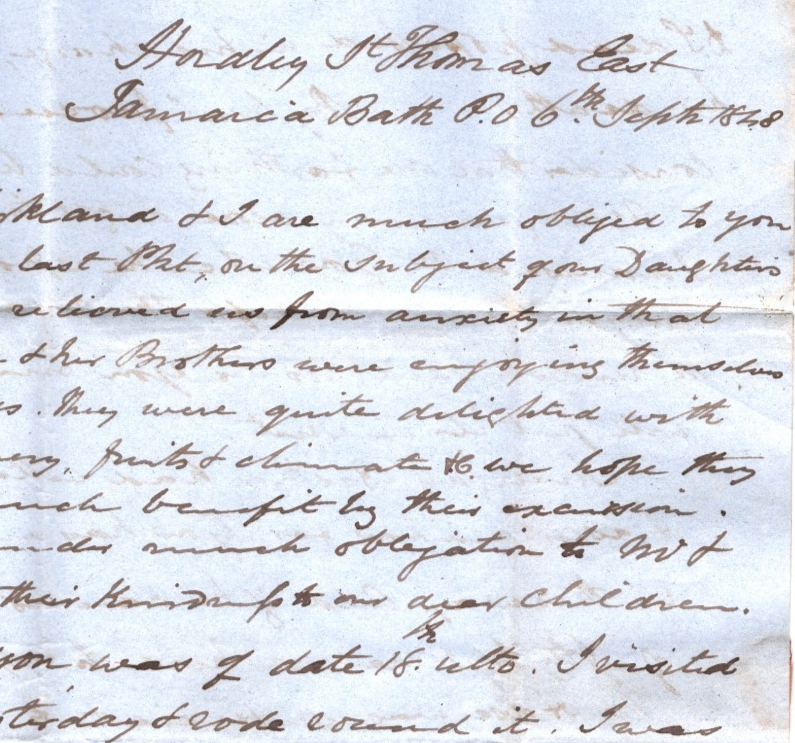 Hordley St Thomas East
Jamaica Bath P.O 6th Septr 1848
kland & I are much obliged to you
last Pkt, on the subject of our Daughters
relieved us from anxiety in that
& her Brothers were enjoying themselves
s. they were quite delighted with
ery, fruits & climate &c. we hope they
uch benefit by their excursion.
nder much obligation to Mr &
their Kindness to our dear children.
you was of date 18th ulto. I visited
sterday & rode round it. I was